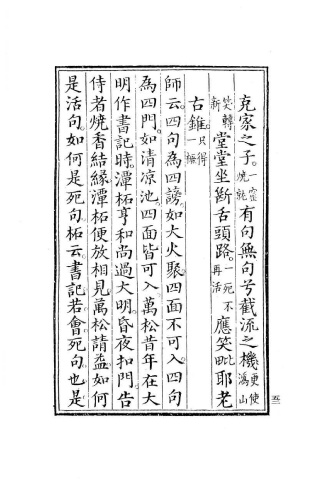 克家之子。一窰燒就有句無句兮截流之機更使溈山
笑轉新堂堂坐斷舌頭路。一死不再活應笑毗耶老
古錐。只得一橛
師云。四句為四謗。如大火聚。四面不可入。四句
為四門。如清凉池。四面皆可入。萬松昔年在大
明作書記時。潭柘亨和尚過大明。昏夜扣門告
侍者燒香結緣潭柘便放相見萬松請益如何
是活句。如何是死句。柘云。書記若會死句。也是